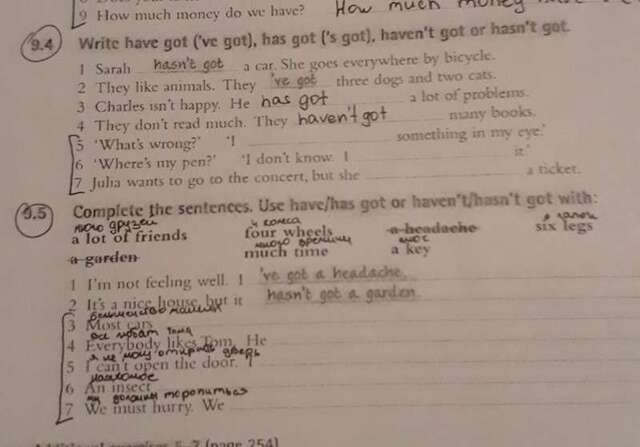 9 How much money do we have? How much money
9.4 Write have got ('ve got), has got ('s got), haven't got or hasn't got.
1 Sarah hasn't got a car. She goes everywhere by bicycle.
2 They like animals. They 've got three dogs and two cats.
3 Charles isn't happy. He has got a lot of problems.
4 They don't read much. They haven't got many books.
5 'What's wrong?' 'I something in my eye.'
6 'Where's my pen?' 'I don't know. I it.'
7 Julia wants to go to the concert, but she a ticket.
9.5 Complete the sentences. Use have/has got or haven't/hasn't got with:
много друзей 4 колеса
a lot of friends four wheels a headache six legs
много времени
a garden much time a key
1 I'm not feeling well. I 've got a headache.
2 It's a nice house, but it hasn't got a garden.
большинство машин
3 Most cars
все любят Тома
4 Everybody likes Tom. He
я не могу открыть дверь
5 I can't open the door. I
насекомое
6 An insect
мы должны торопиться
7 We must hurry. We
(page 254)